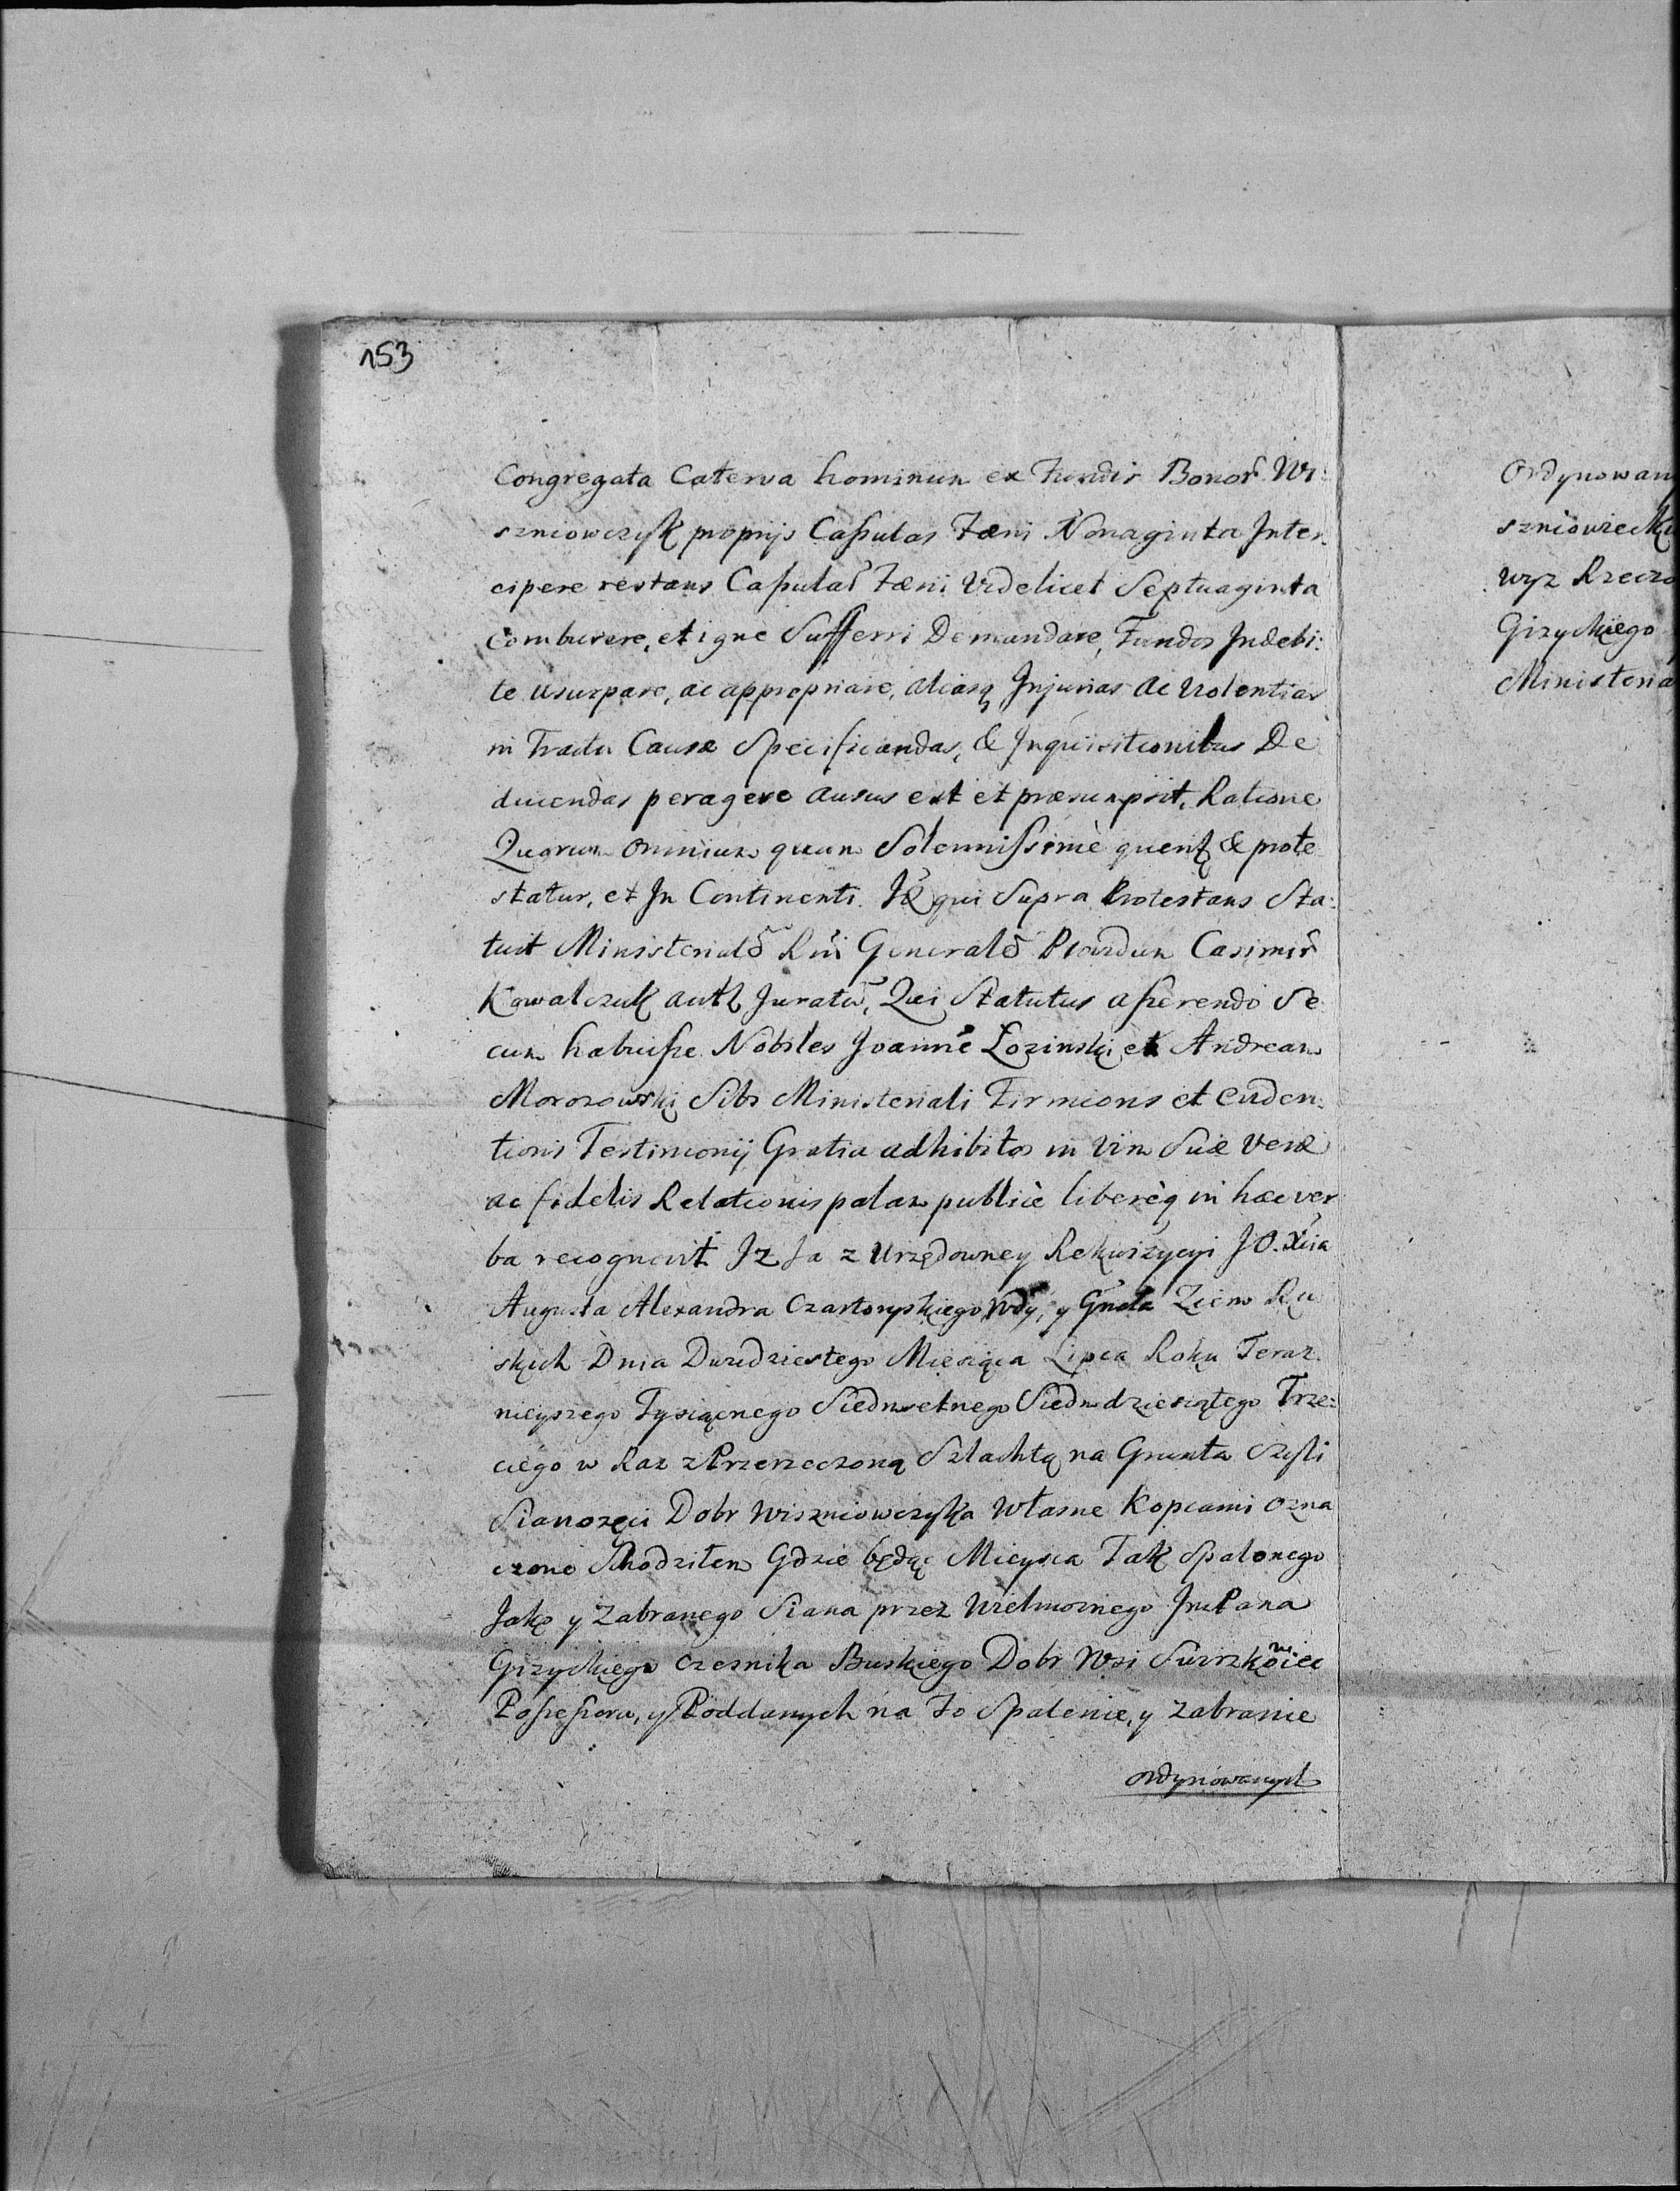 153
Congregata Caterva hominum ex Fundis Bonor̃ Wi:
szniowczyk proprijs Capulas Fæni Nonaginta Inter:
cipere restans Capular̃ Fæni Videlicet Septuaginta
comburere, et igne Sufferri Demandare, Fundos Indebi:
te usurpare, ac appropriare, aliasq Injurias ac Violentias
in Tractu Causæ Specificandas, & Inquisitionibus De
ducendas peragere ausus est et præsumpsit, Ratione
Quorum omnium quam Solennissimè querit & prote
statur, et In Continenti. Id̃ qui Supra Protestans Sta:
tuit Ministerialẽ Rñi Generalẽ Providum Casimir̃
Kowalczuk auth Juratũ, Qui Statutus asserendo Se
cum habuisse Nobiles Joannẽ Łozinski et Andream
Morozowski Sibi Ministeriali Firmioris et Eviden:
tioris Testimonij Gratia adhibitos in Vim Suæ Veræ
ac fidelis Relationis palam publicè liberèq in hæc ver
ba recognovit Iz Ja z Urzędowney Rekwizycyi JO. Xcia
Augusta Alexandra Czartoryskiego Wdy, y Gnała Ziem Ru
skich Dnia Dwudziestego Miesiąca Lipca Roku Teraz
nieyszego Tysiącnego Siedmsetnego Siedmdziesiątego Trze:
ciego w Raz z Przerzeczoną Szlachtą na Grunta Czyli
Sianozęci Dobr Wiszniowczyka Własne Kopcami Ozna
czone Schodziłem Gdzie będąc Mieysca Tak Spalonego
Jako y Zabranego Siana przez Wielmoznego JmPana
Gizyckiego Czesnika Buskiego Dobr Wsi Swirzkowiec
Possessora, y Poddanych na To Spalenie, y Zabranie
ordynowanych
Ordynowan
szniowieck
wyz Rzecz
Gizyckiego
Ministeria